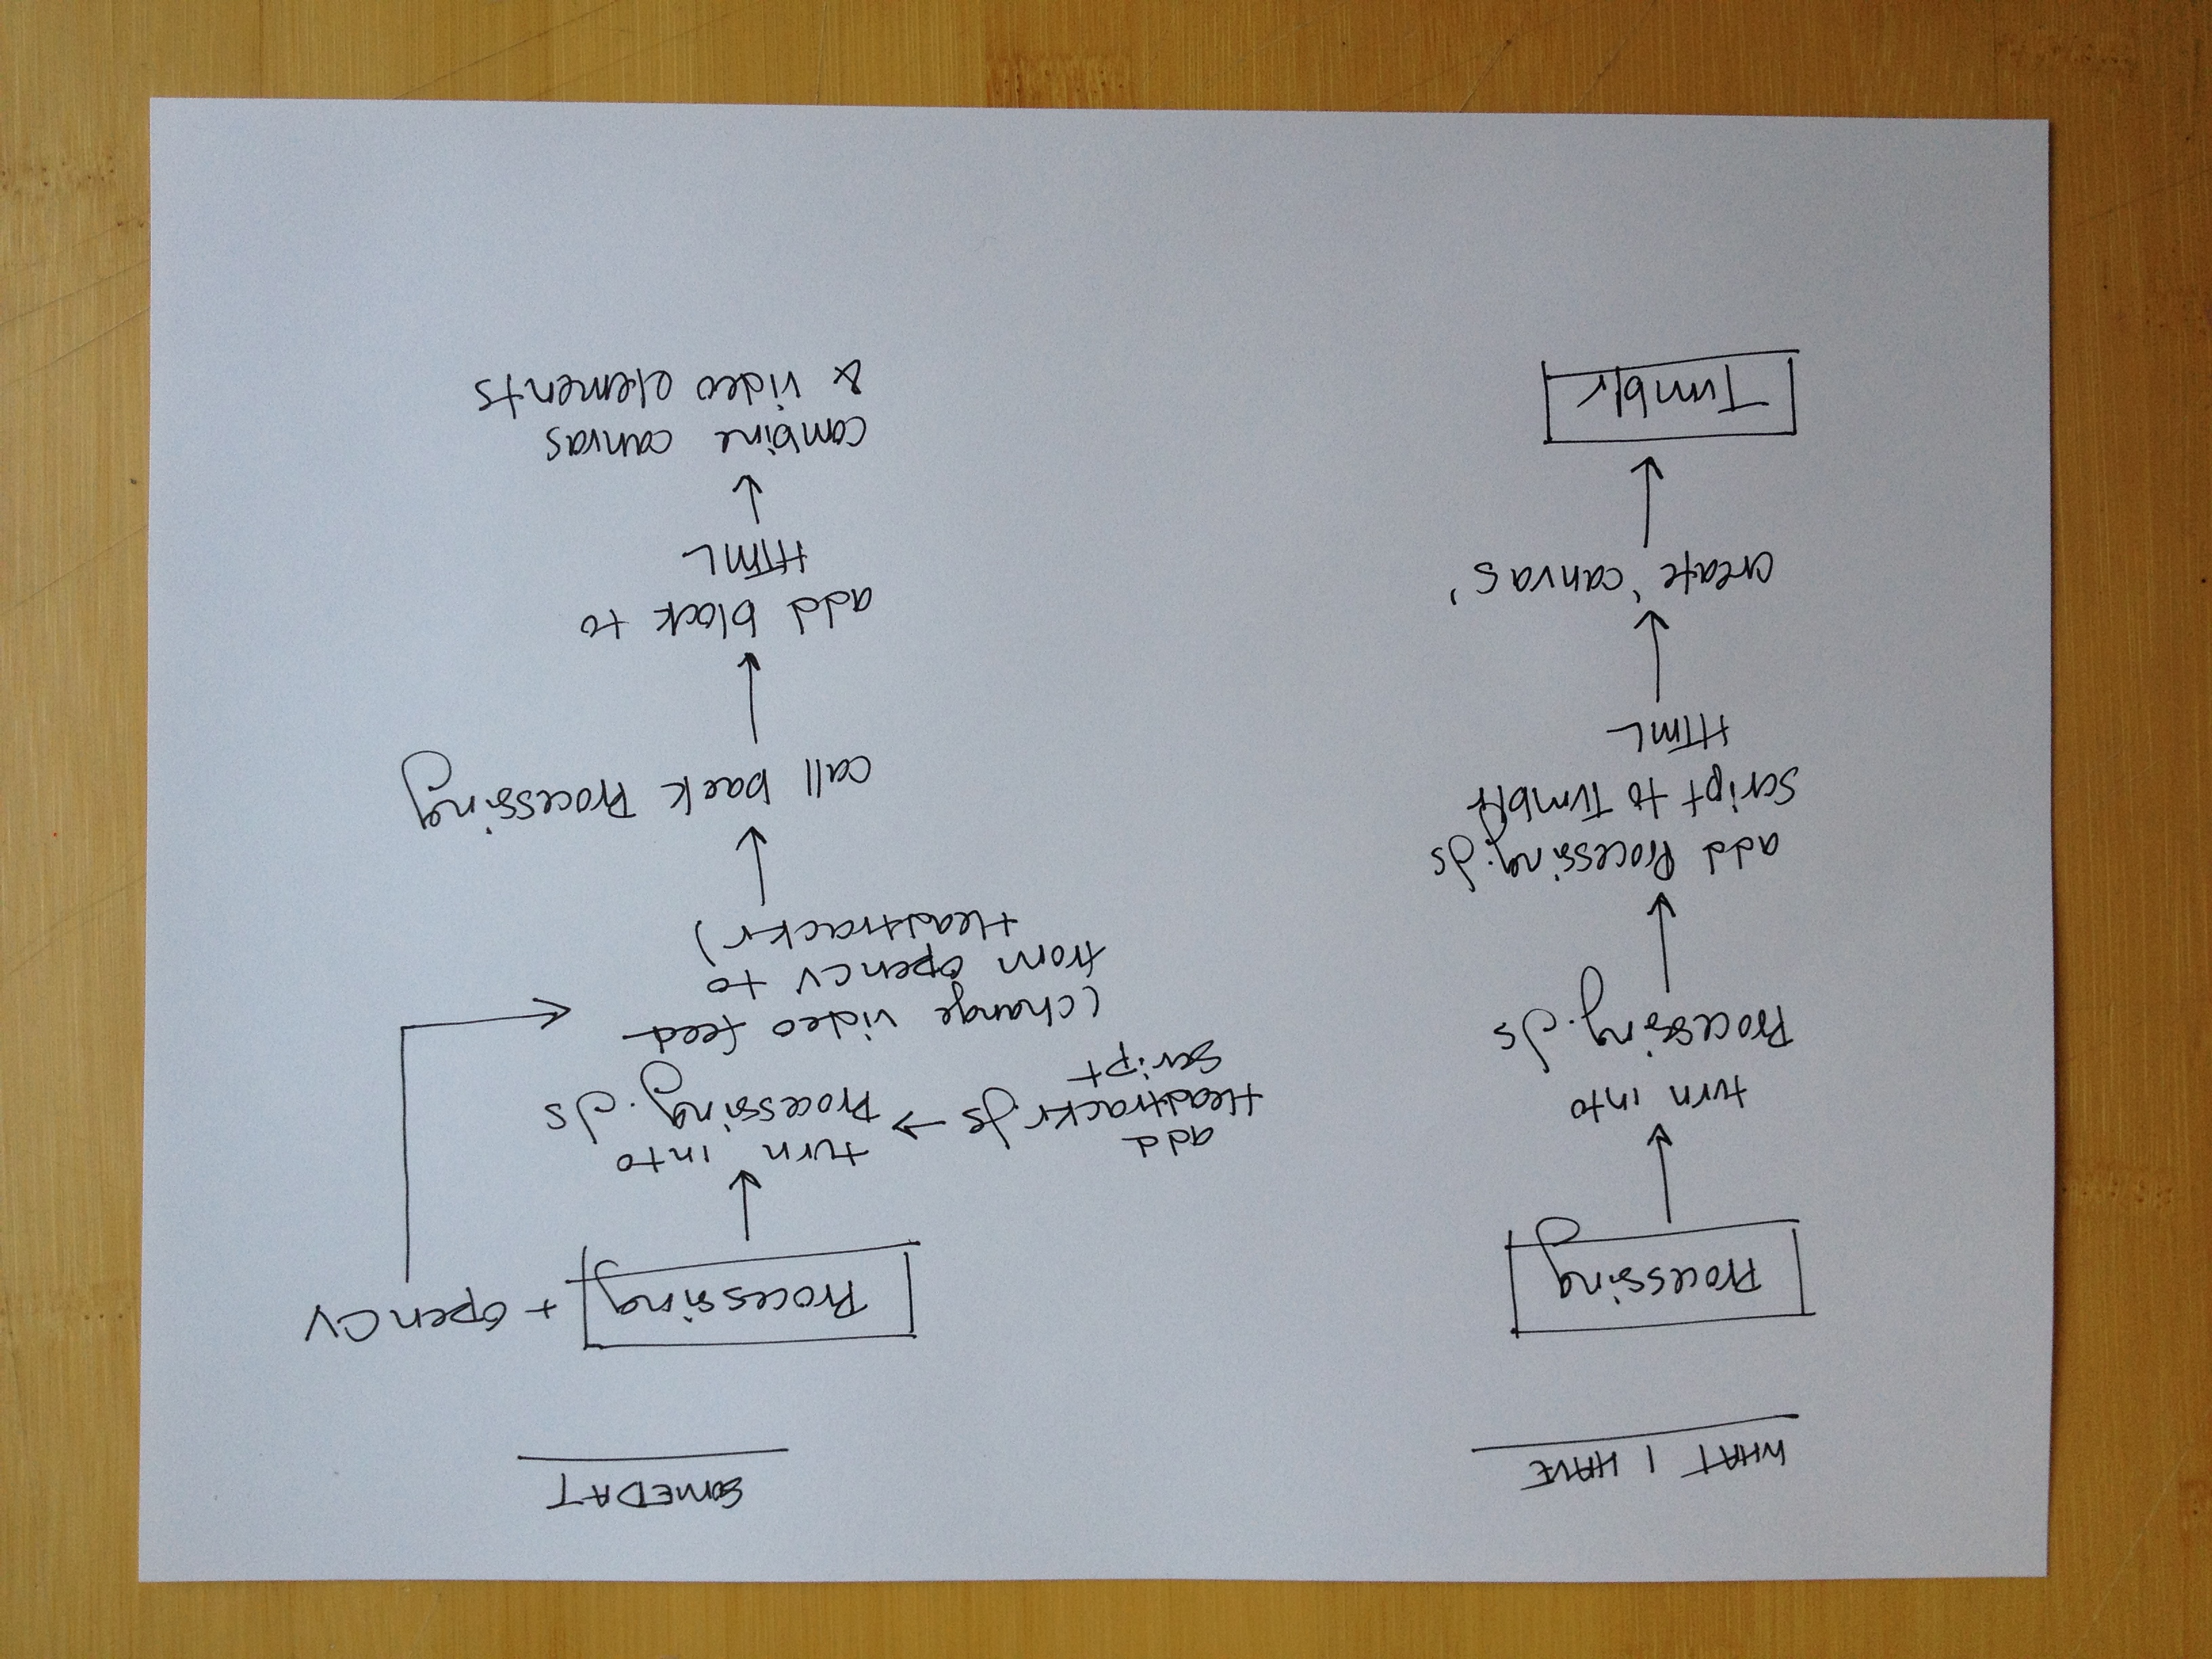 WHAT I HAVE
Processing
turn into
Processing.Js
add Processing.Js
script to Tumblr
HTML
create 'canvas'
Tumblr
SOMEDAY
Processing + openCV
turn into
Processing.Js
add
Headtrackr.Js →
script
(change video feed
from openCV to
Headtrackr)
call back Processing
add block to
HTML
combine canvas
& video elements